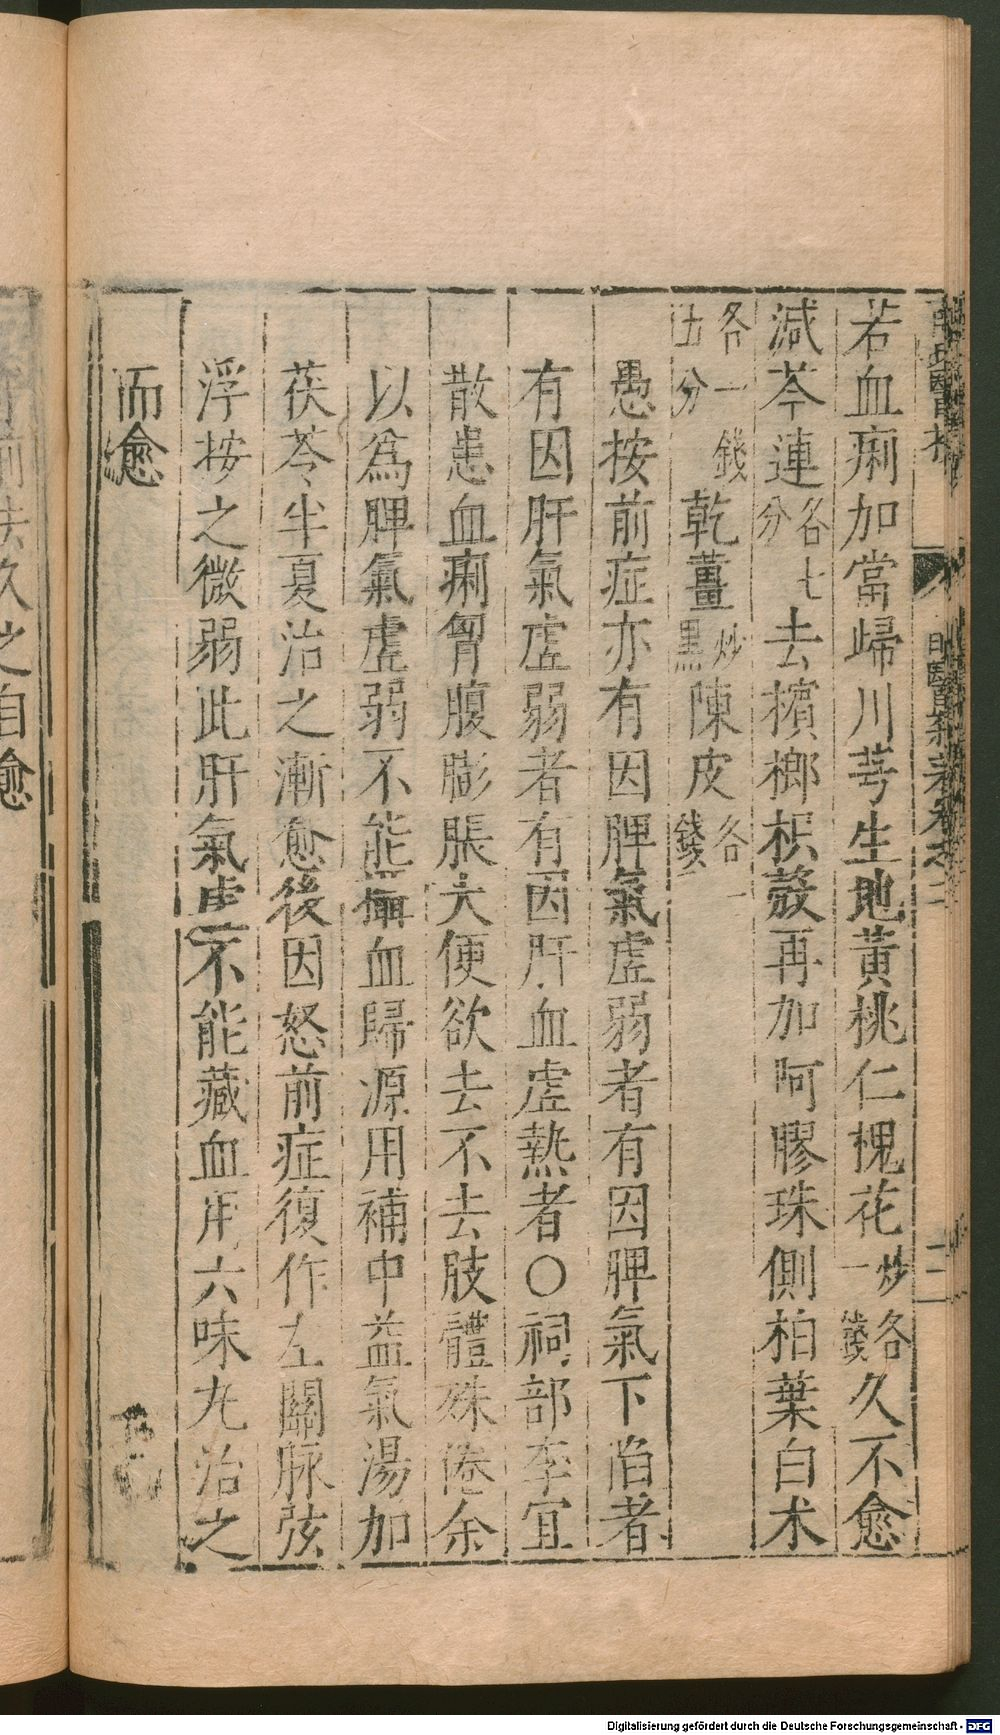 若血痢加當歸川芎生地黃桃仁槐花炒各一錢久不愈
減芩連各七分去檳榔枳殼再加阿膠珠側柏葉白朮
各一錢五分乾薑炒黑陳皮各一錢
愚按前症亦有因脾氣虛弱者有因脾氣下陷者
有因肝氣虛弱者有因肝血虛熱者○祠部李宜
散患血痢胷腹膨脹大便欲去不去肢體殊倦余
以爲脾氣虛弱不能攝血歸源用補中益氣湯加
茯苓半夏治之漸愈後因怒前症復作左關脉弦
浮按之微弱此肝氣虛不能藏血用六味丸治之
而愈
前法久之自愈
Digitalisierung gefördert durch die Deutsche Forschungsgemeinschaft - DFG